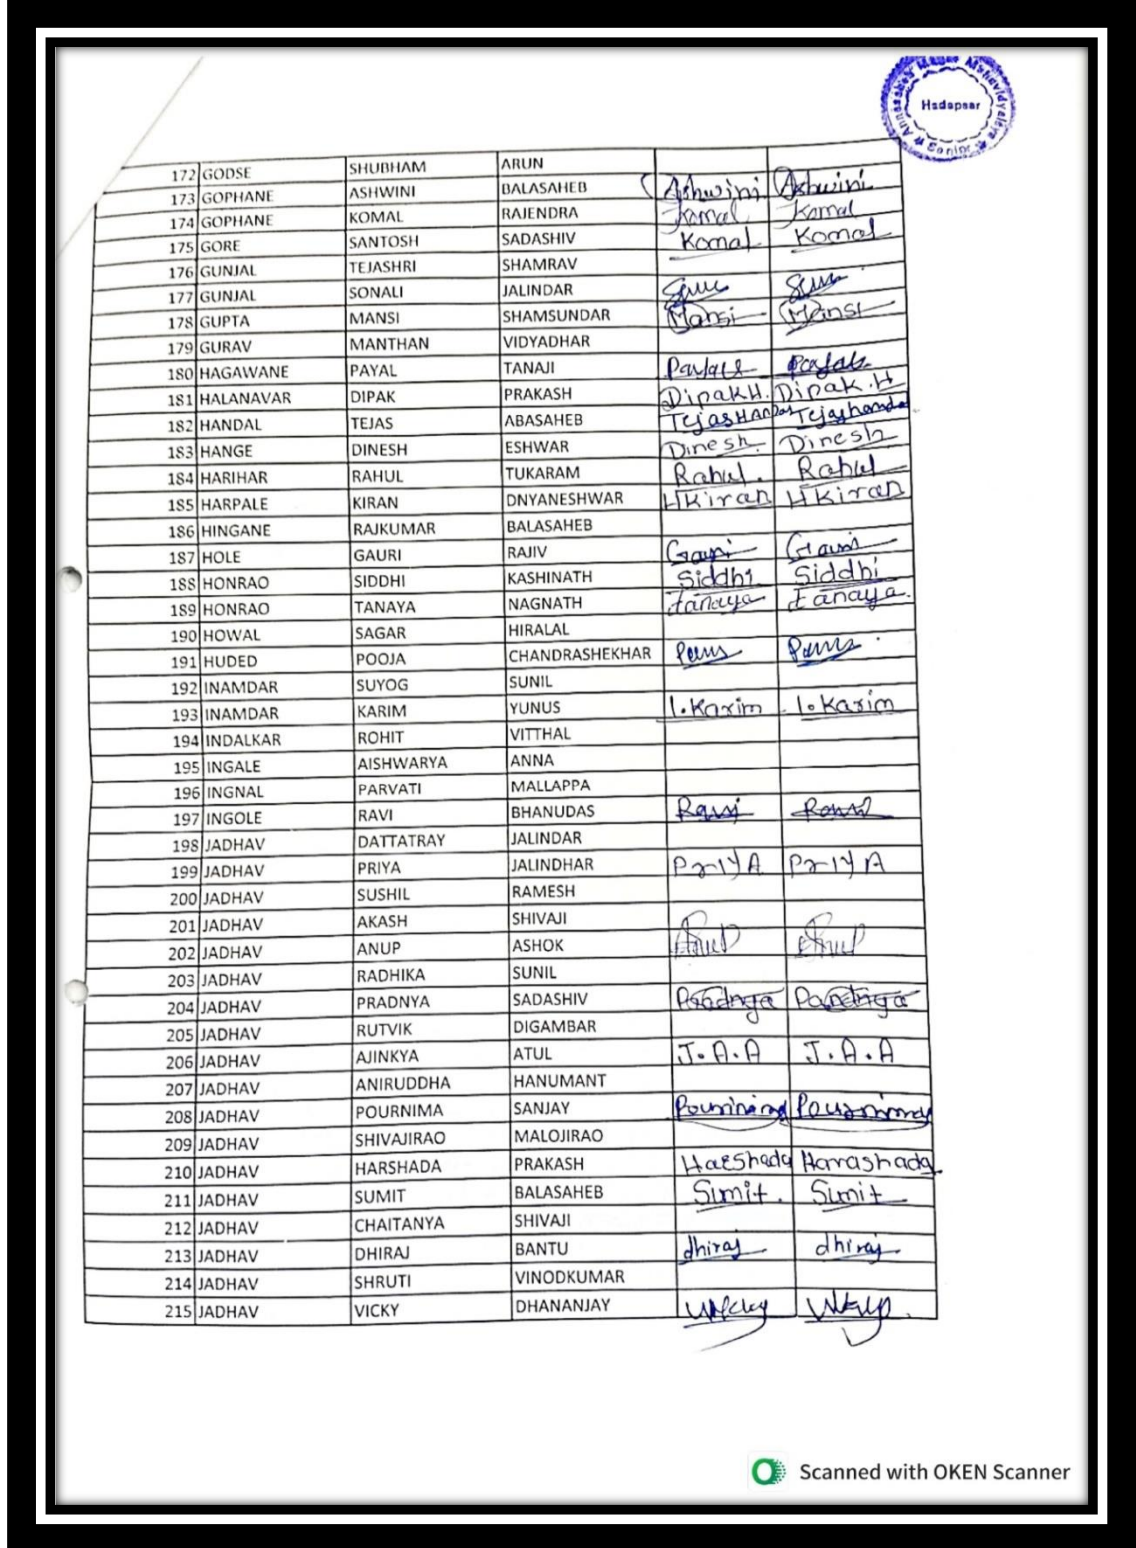 Annasaheb Magar Mahavidyalaya
Hadapsar
Senior
172 GODSE SHUBHAM ARUN
173 GOPHANE ASHWINI BALASAHEB Ashwini Ashwini
174 GOPHANE KOMAL RAJENDRA Komal Komal
175 GORE SANTOSH SADASHIV Komal Komal
176 GUNJAL TEJASHRI SHAMRAV
177 GUNJAL SONALI JALINDAR
178 GUPTA MANSI SHAMSUNDAR Mansi Mansi
179 GURAV MANTHAN VIDYADHAR
180 HAGAWANE PAYAL TANAJI
181 HALANAVAR DIPAK PRAKASH DipakH. Dipak.H
182 HANDAL TEJAS ABASAHEB
183 HANGE DINESH ESHWAR Dinesh. Dinesh
184 HARIHAR RAHUL TUKARAM Rahul. Rahul
185 HARPALE KIRAN DNYANESHWAR HKiran HKiran
186 HINGANE RAJKUMAR BALASAHEB
187 HOLE GAURI RAJIV
188 HONRAO SIDDHI KASHINATH Siddhi Siddhi
189 HONRAO TANAYA NAGNATH tanaya tanaya.
190 HOWAL SAGAR HIRALAL
191 HUDED POOJA CHANDRASHEKHAR
192 INAMDAR SUYOG SUNIL
193 INAMDAR KARIM YUNUS I.Karim I.Karim
194 INDALKAR ROHIT VITTHAL
195 INGALE AISHWARYA ANNA
196 INGNAL PARVATI MALLAPPA
197 INGOLE RAVI BHANUDAS
198 JADHAV DATTATRAY JALINDAR
199 JADHAV PRIYA JALINDHAR PriyA PriyA
200 JADHAV SUSHIL RAMESH
201 JADHAV AKASH SHIVAJI
202 JADHAV ANUP ASHOK
203 JADHAV RADHIKA SUNIL
204 JADHAV PRADNYA SADASHIV
205 JADHAV RUTVIK DIGAMBAR
206 JADHAV AJINKYA ATUL J.A.A J.A.A
207 JADHAV ANIRUDDHA HANUMANT
208 JADHAV POURNIMA SANJAY
209 JADHAV SHIVAJIRAO MALOJIRAO
210 JADHAV HARSHADA PRAKASH Harshada Harashada
211 JADHAV SUMIT BALASAHEB Sumit. Sumit
212 JADHAV CHAITANYA SHIVAJI
213 JADHAV DHIRAJ BANTU dhiraj dhiraj
214 JADHAV SHRUTI VINODKUMAR
215 JADHAV VICKY DHANANJAY
Scanned with OKEN Scanner